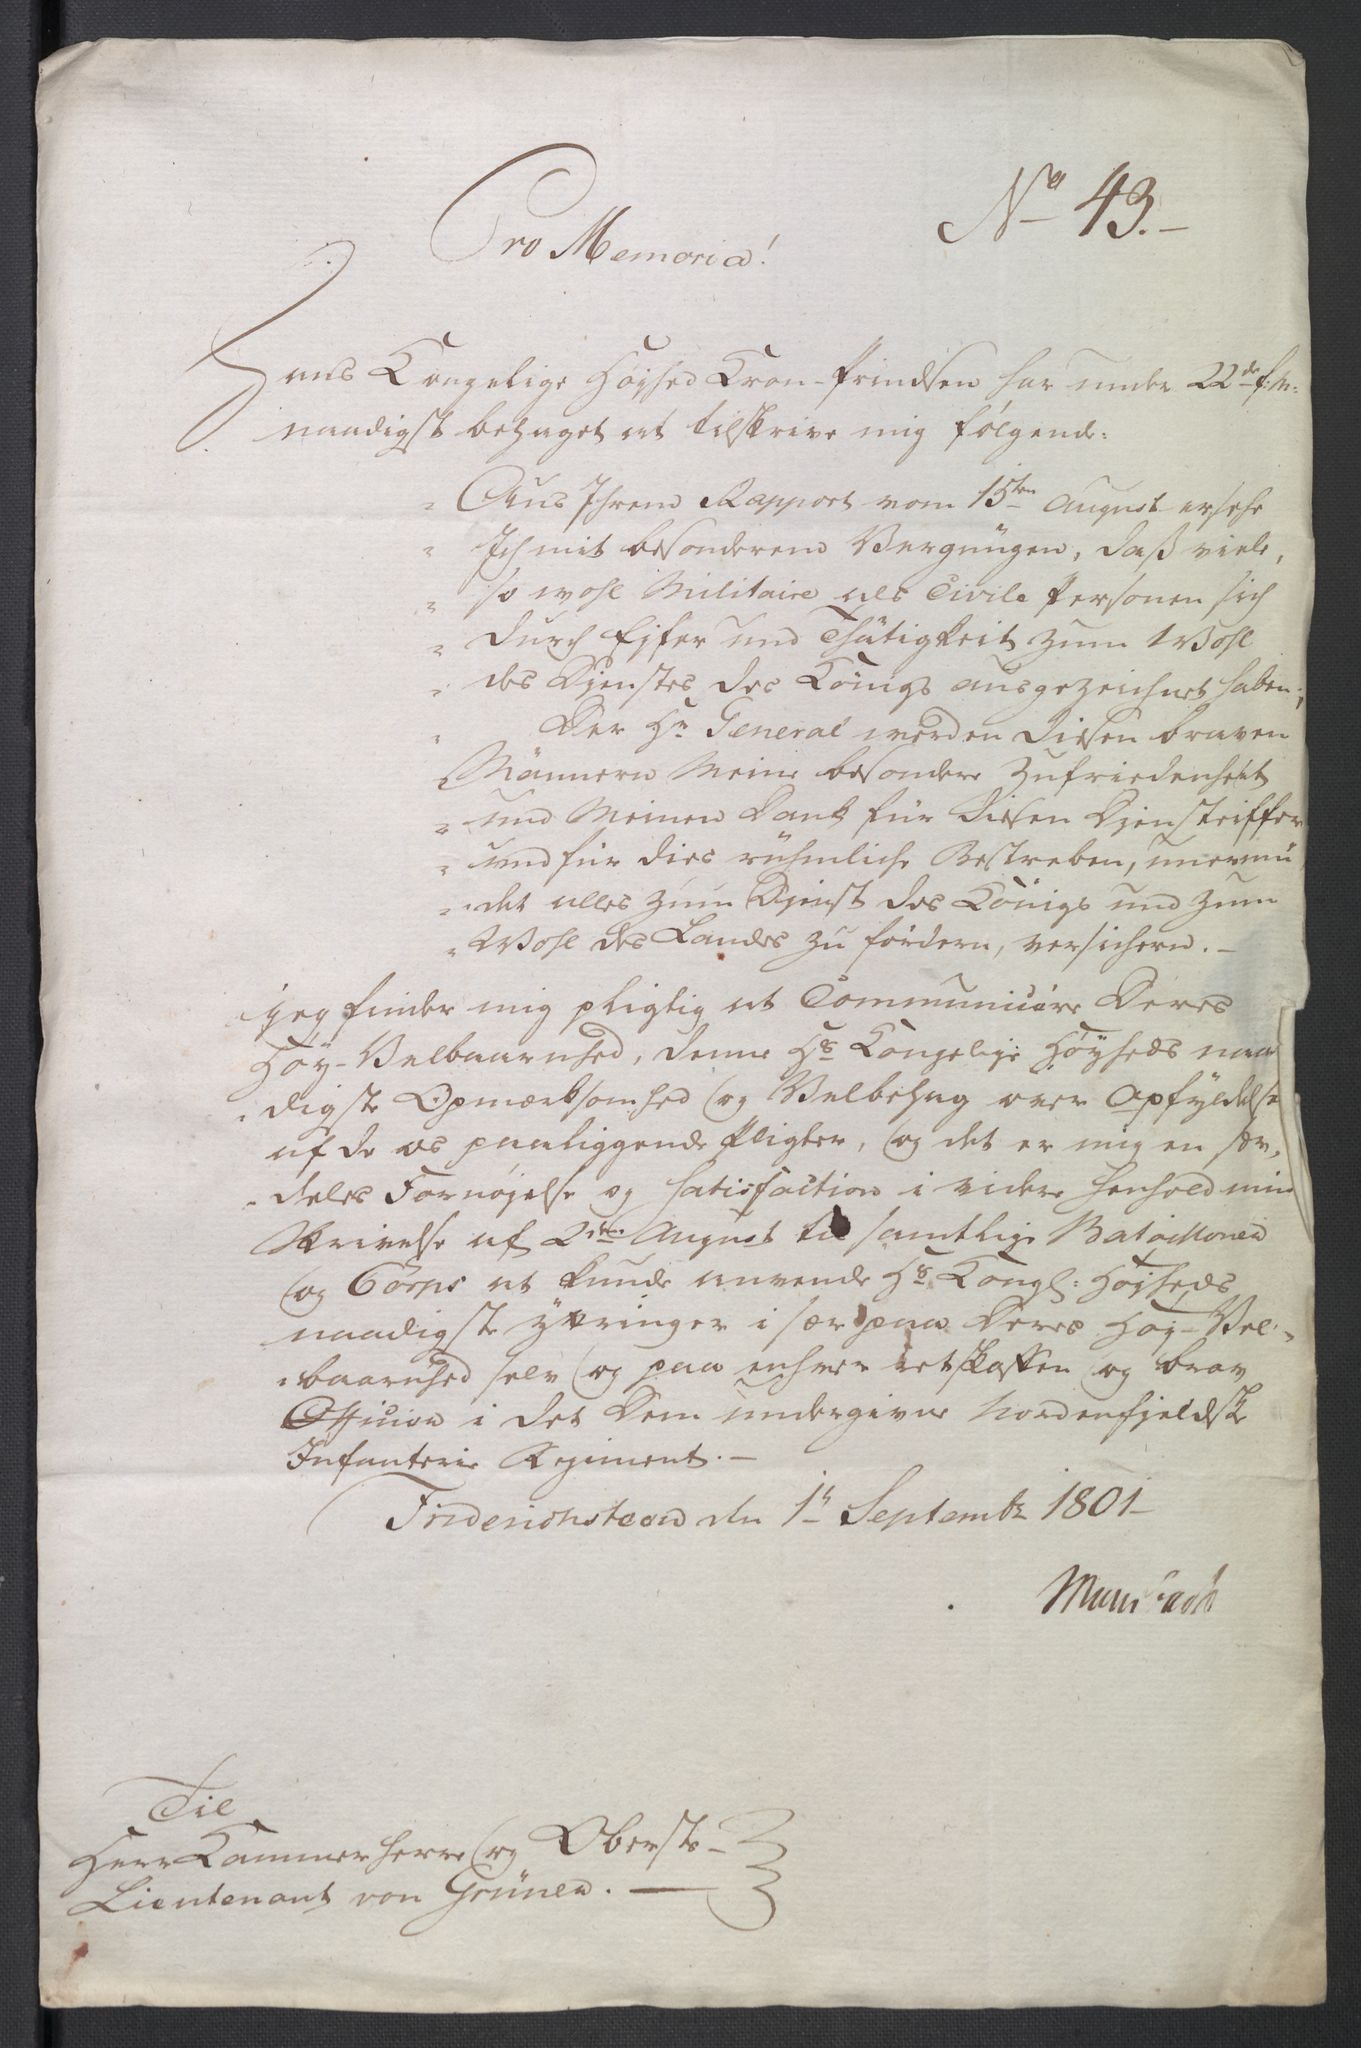 No 43.
Pro Memoria!
Hans Kongelige Höyhed Cron-Prindsen har under 22de f: M:
naadigst behaget at tilskrive mig følgende:
„ Aus Ihrem Rapport vom 15ten August ersehe
„ Ich mit besonderem Vergnügen, daß viele,
„ so wohl Militaire als Civile Personen sich
„ durch Eyfer und Thätigkeit zum Wohl
„ des Djenstes des Königs ausgezeichnet haben;
„ Der Hr General werden diesen braven
„ Männern Meine besondere Zufriedenheit
„ und Meinen Dank für diesen Djensteiffer
„ und für dies rühmliche Bestreben, unermü
„ det alles zum Djenst des Königs und zum
„ Wohl des Landes zu fördern, versichern. —
jeg finder mig pligtig at Communicere Deres
Höy-Velbaarnhed, denne Hs Kongelige Höyheds naa
„ digste Opmærksomhed og Velbehag over Opfyldelse
af de os paaliggende Pligter, og det er mig en sær,
„ deles Fornøjelse og Satisfaction i videre Henhold min
Skrivelse af 2den August til samtlige Batallioner
og Corps at kunde anvende Hs Kongl: Höyheds
naadigste Yttringer i sær paa Deres Höy-Vel„
„ baarnhed selv og paa enhver retskaffen og brav
Officier i det Dem undergivne Nordenfjeldske
Infanterie Regiment. —
Friderichstad den 1te Septembr 1801
Mansbach
Til
Herr Kammerherre og Oberst-
Lieutenant von Grüner. —